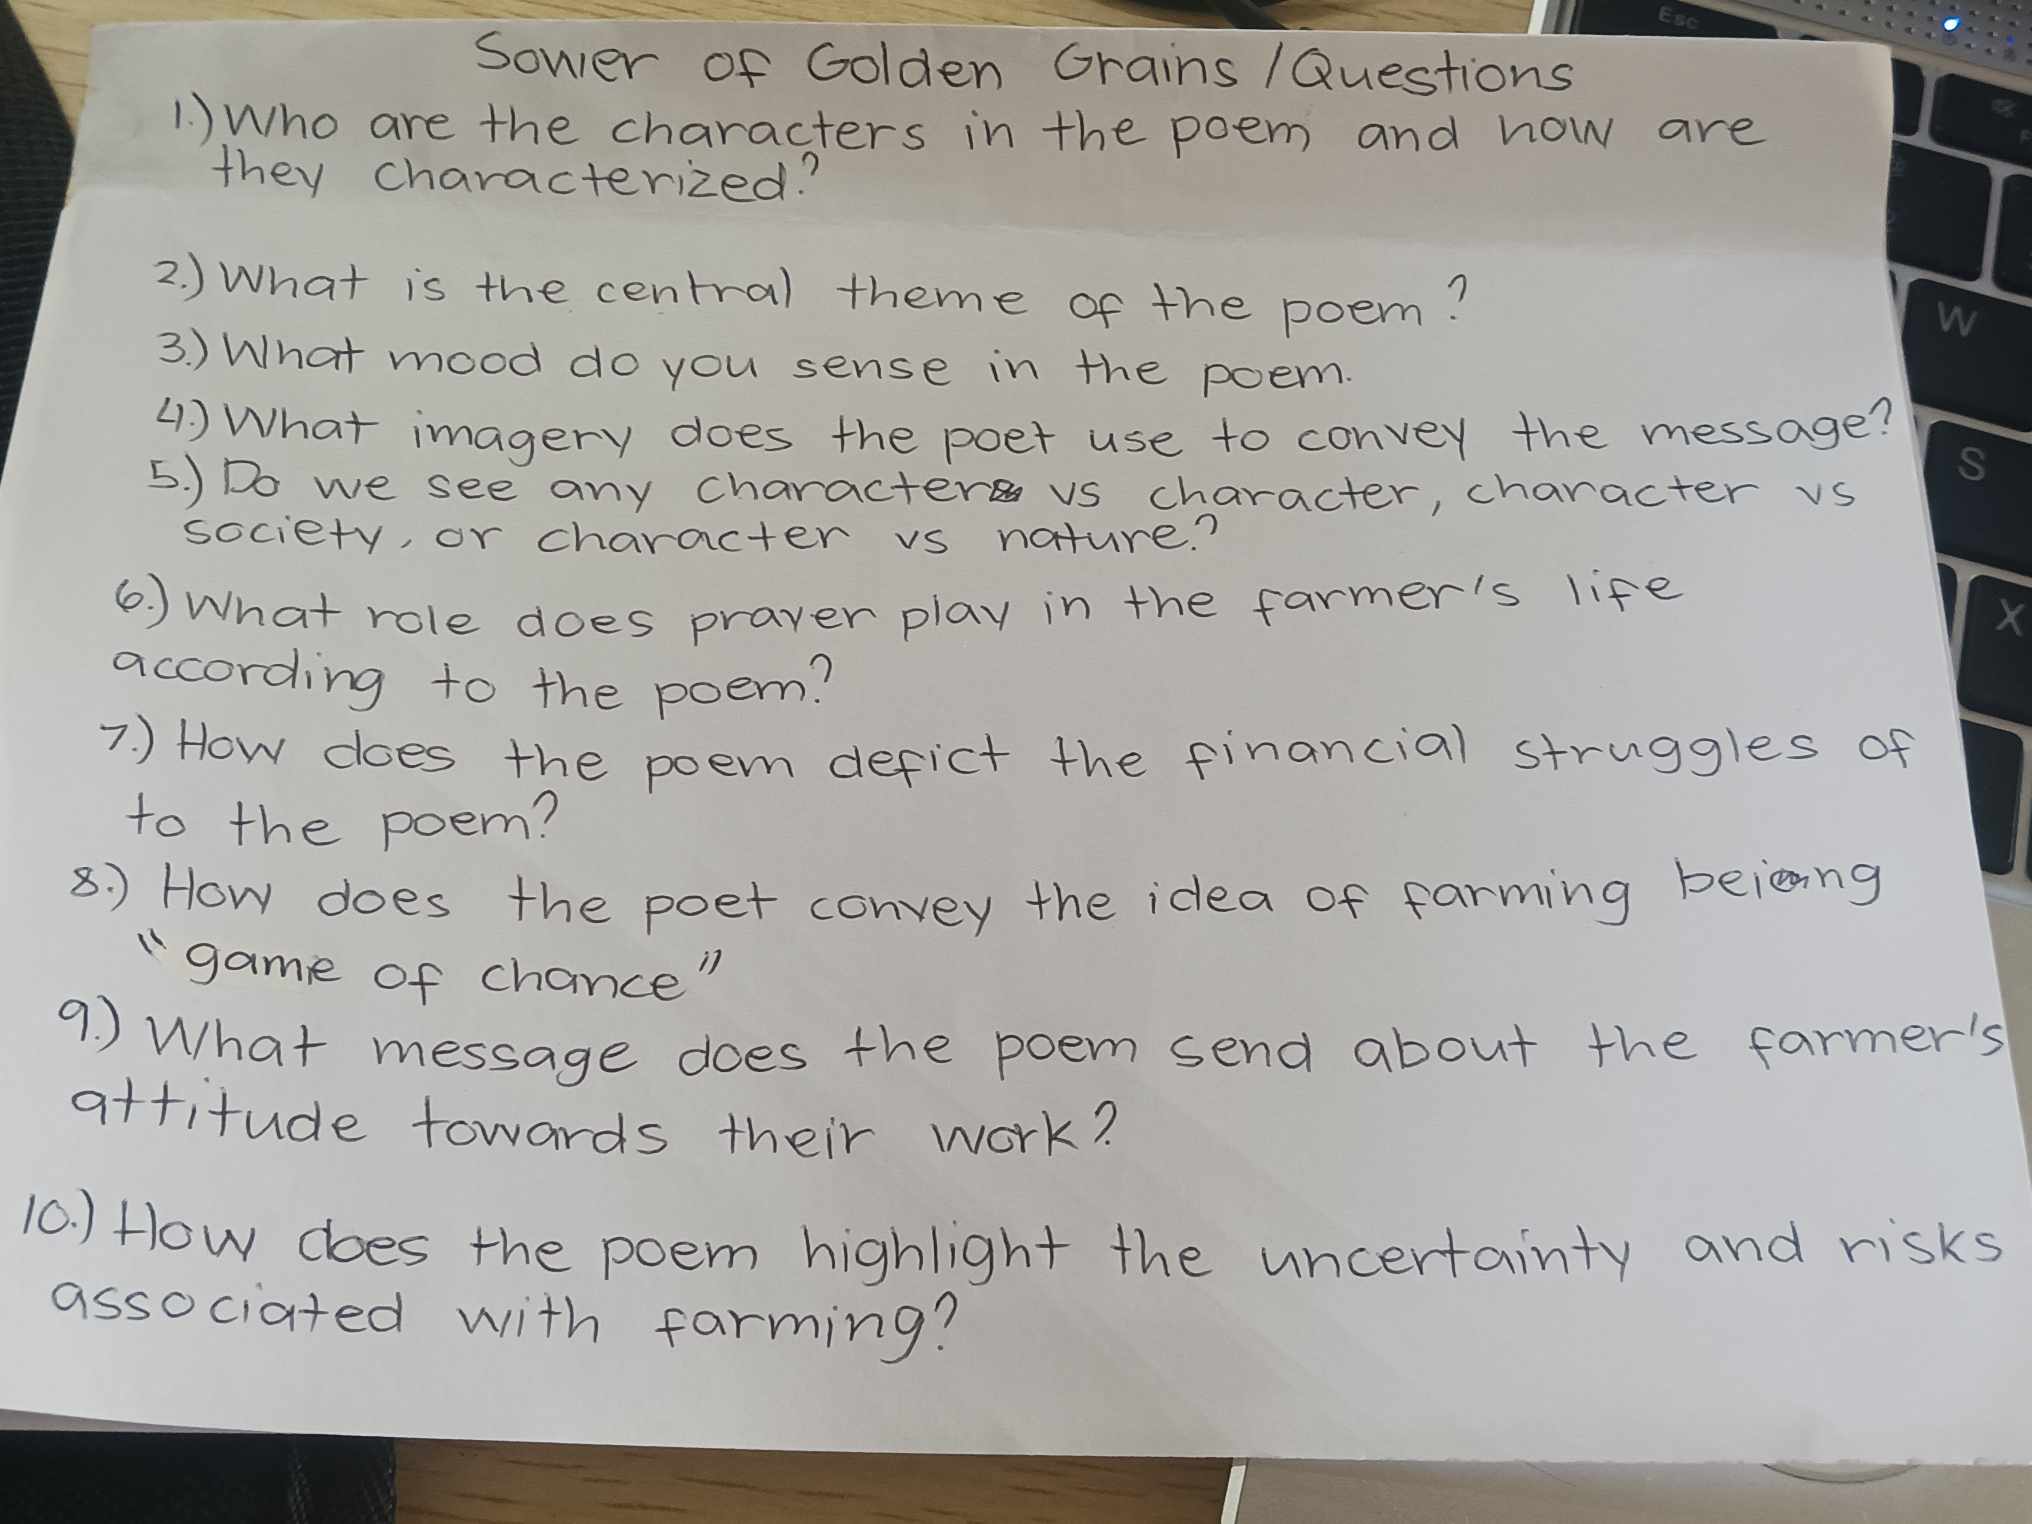 Sower of Golden Grains / Questions
1.) Who are the characters in the poem, and how are
they characterized?
2.) What is the central theme of the poem?
3.) What mood do you sense in the poem.
4.) What imagery does the poet use to convey the message?
5.) Do we see any character vs character, character vs
society, or character vs nature?
6.) What role does prayer play in the farmer's life
according to the poem?
7.) How does the poem depict the financial struggles of
to the poem?
8.) How does the poet convey the idea of farming being
"game of chance"
9.) What message does the poem send about the farmer's
attitude towards their work?
10.) How does the poem highlight the uncertainty and risks
associated with farming?
Esc
W
S
X